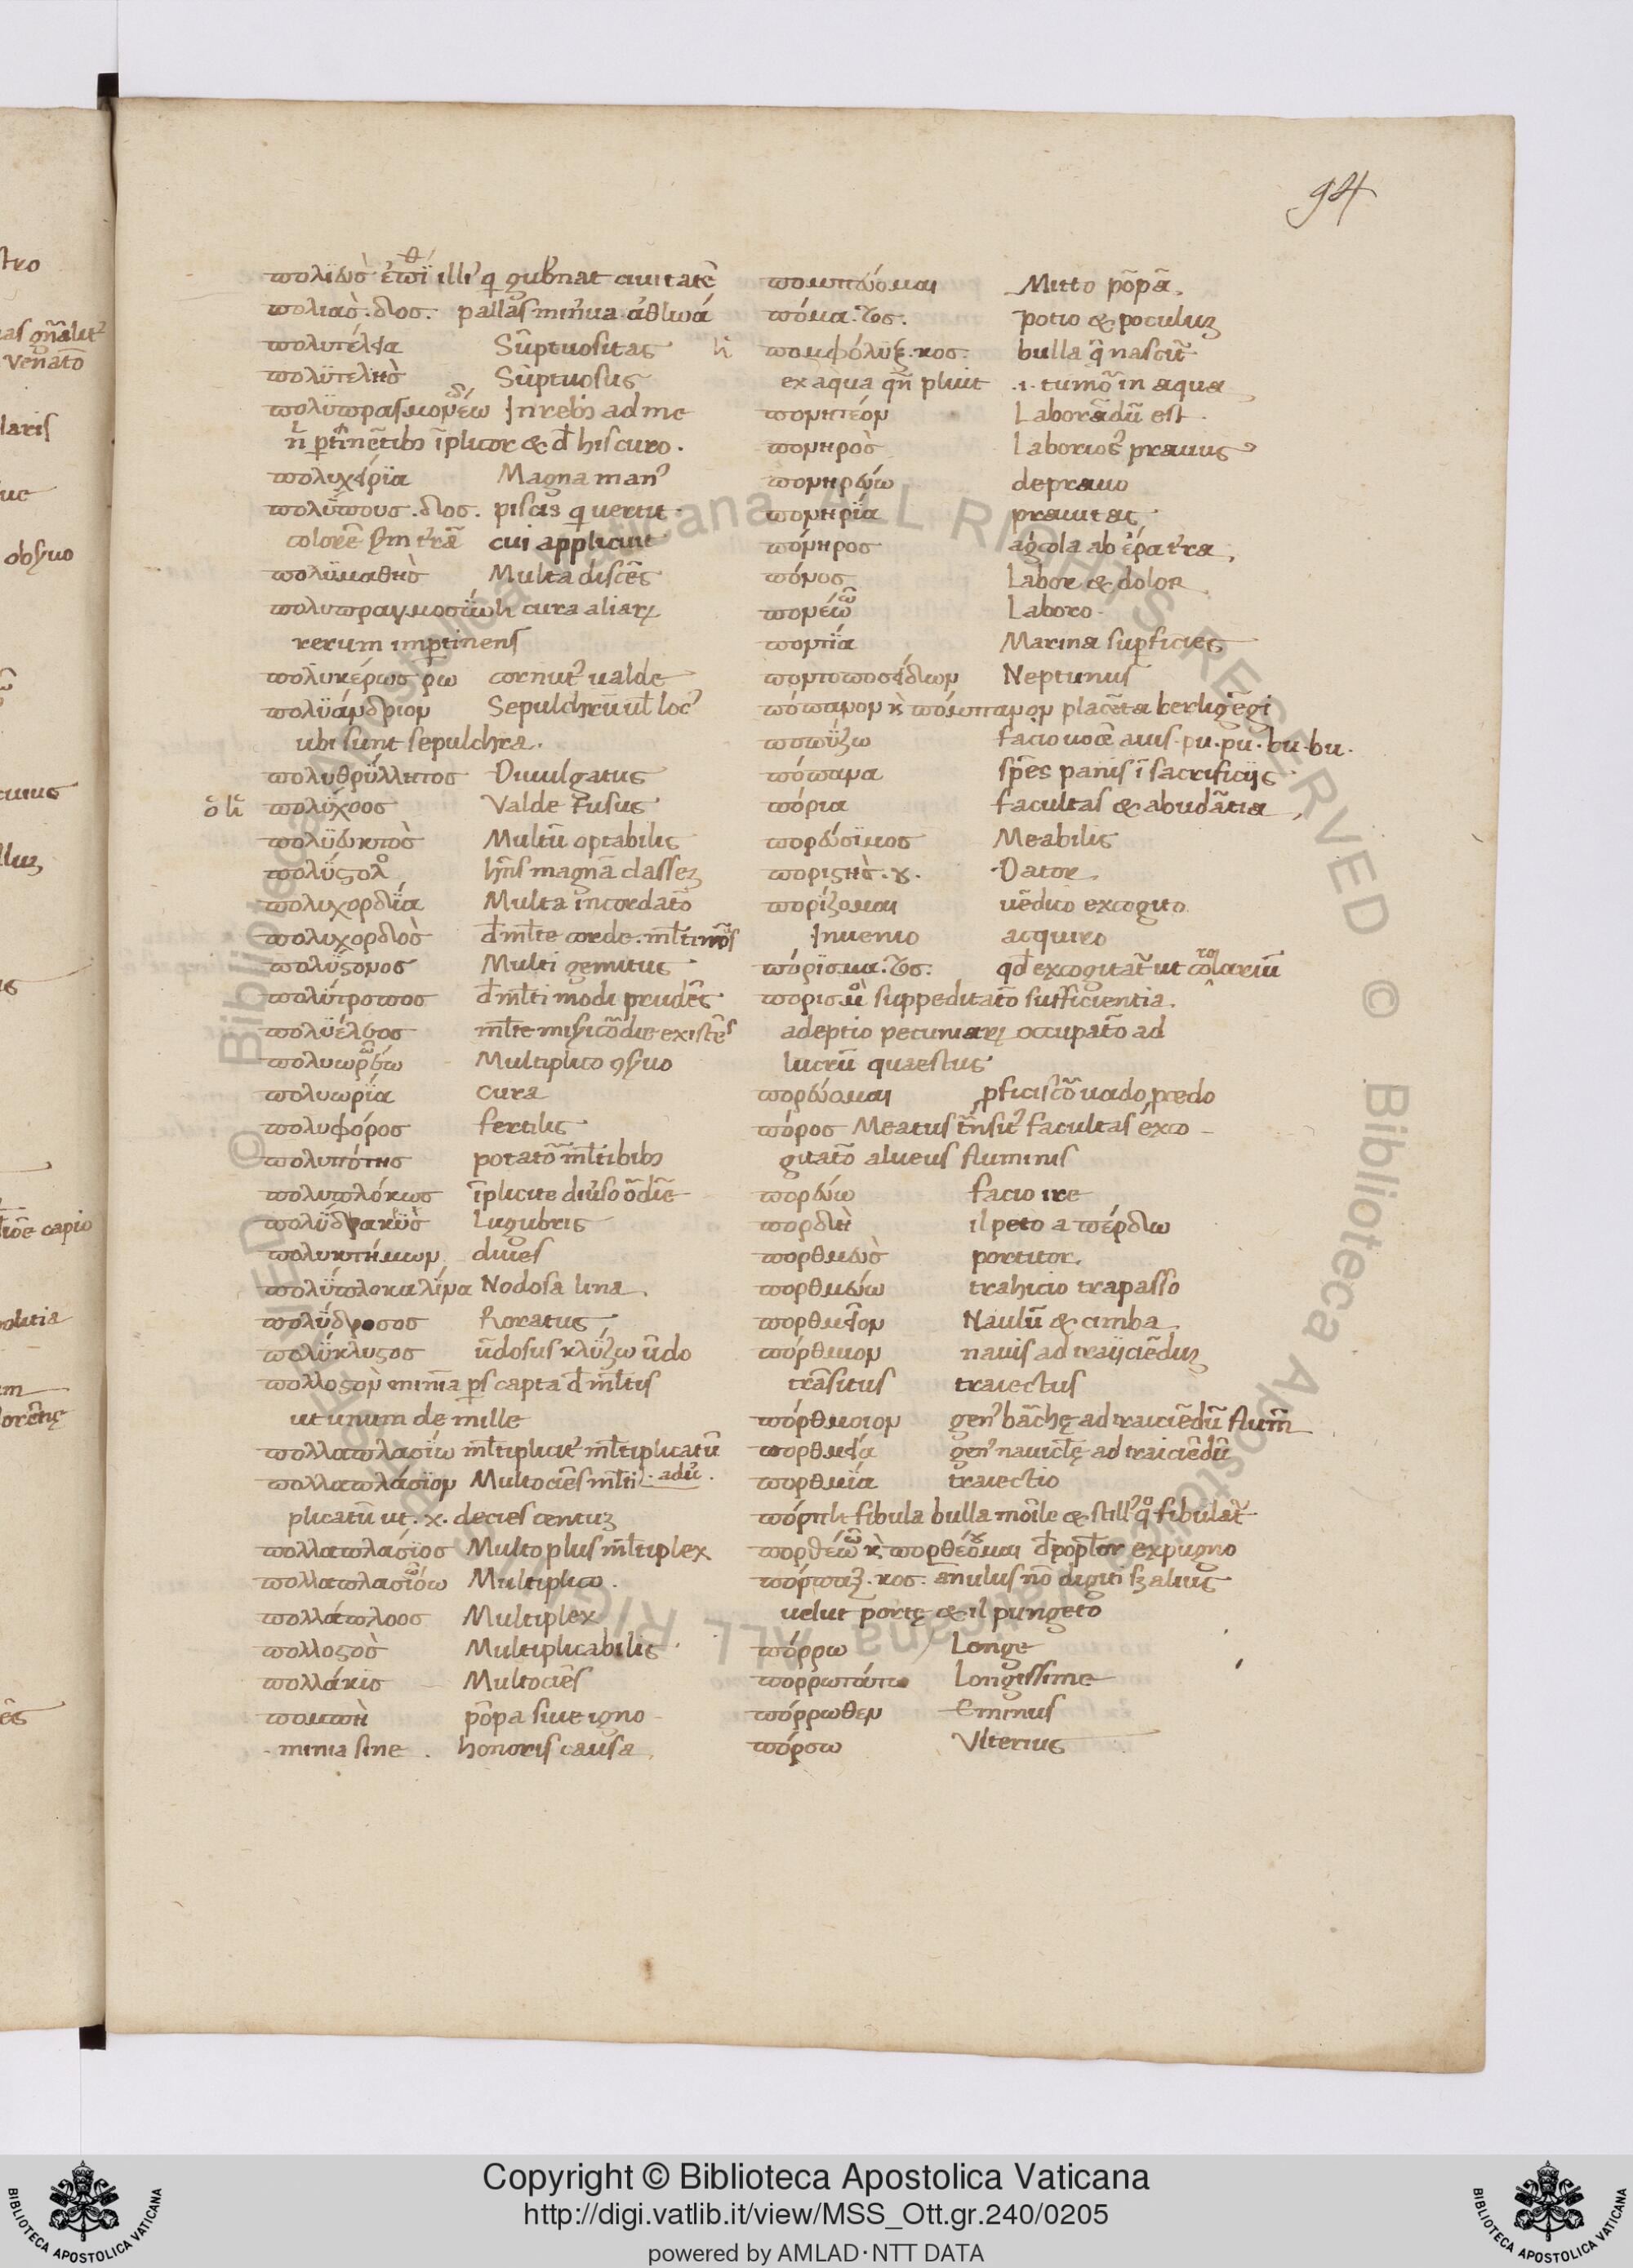 94
πολϊεὺσ ἐπϊ illi' q gub̃nat ciuitatẽ
πολιασ̀ . δοσ . pallas min̾ua ἀθηνά
πολυτέλεια Sũptuositas
πολϋτελησ̀ Sũptuosus
πολϋπραγμονέω In reb; ad me
n̄ ptinẽtib; ĩplicor & đ his curo .
πολυχειρϊα Magna man'
πολύπουσ . δοσ . piscis q uertit
colorẽ cui applicuit
πολϋμαθησ̀ Multa discẽs
πολυπραγμοσΰνη cura aliaꝝ
rerum imptinens
πολϋκέρωσ ρω cornut' ualde
πολϋάνδριον Sepulchrũ ul̄ loc'
ubi sunt sepulchra .
πολυθρΰλλητοσ Diuulgatus
πολΰχοοσ Valde fusus
πολϋευκτὸσ Multũ optabilis
πολΰϛολ hñs magnã classez
πολυχορδΐα Multa incordatõ
πολυχορδοσ̀ đ ml̄te corde .
πολΰϛονοσ Multi gemitus
πολΰτροποσ đ ml̄ti modi prudẽs
πολϋέλεοσ ml̄te misicõdie existẽs
πολυωρέω Multiplico ꝯsuo
πολυωρΐα cura
πολυφόροσ fertilis
πολυπότησ potatõ ml̄tibib;
πολυπλόκωσ ĩplicite diũso õdiẽ
πολϋδακρϋσ̀ Lugubris
πολυκτήμων diues
πολΰπλοκα λίνα Nodosa lina .
πολΰδροσοσ Roratus
πολΰκλυϛοσ ũdosus κλΰζω ũdo
πολλοϛὸν minĩa ps capta đ ml̄tis
ut unum de mille
πολλαπλασΐω ml̄tiplicit' ml̄tiplicatũ
πολλαπλάσϊον Multociẽs ml̄ti . adũ .
plicatũ ut . x . decies centuz
πολλαπλάσϊοσ Multo plus ml̄tiplex
πολλαπλασϊόω Multiplico .
πολλάπλοοσ Multiplex
πολλοϛοσ̀ Multiplicabilis
πολλάκισ Multociẽs
πομπὴ põpa siue igno
minia sine . honoris causa .
πομπεύομαι Mitto põpã .
πόμα . τοσ . potio & poculuz
πομφόλϋξ . κοσ . bulla q̃ nascit̃
ex aqua qñ pluit .i. tumõ in aqua
πονητέον Laborãdũ est .
πονηροσ̀ Laborios' prauus
πονηρεύω deprauo
πονηρΐα prauitas
πόνηροσ agcola ab ἐρα t'ra .
πόνοσ Labor & dolor
πονέω Laboro .
ποντΐα Marina supficies
ποντοποσείδων Neptunus
πόπανον κ̀ πόμπανον placẽta
ποπΰζω facio uocẽ auis . pu . pu . bu . bu .
πόπανα sp̃es panis ĩ sacrificijs
πόρια facultas & abũdãtia ,
πορεύσϊμοσ Meabilis
ποριϛησ̀ . ȣ . Dator .
πορίζομαι uẽdico excogito
Inuenio acquiro
πόρϊσμα . τοσ . qđ excogitat̃ ut corolariũ
πορισμὸ suppeditatõ sufficientia .
adeptio pecuniaꝝ occupatõ ad
lucrũ quaestus
πορεύομαι pficiscõ uado pcedo
πόροσ Meatus trãsit' facultas exco
gitatõ alueus fluminis
πορεύω facio ire
πορδὴ il peto a πέρδω
πορθμεὺσ portitor .
πορθμεύω trahicio trapasso
πορθμεῖον Naulũ & cimba .
πόρθμιον nauis ad traijciẽduz
trãsitus traiectus
πόρθμοιον gen' bãchę ad traiciẽdũ flum̃
πορθμεία gen' nauicl̄ę ad traiciẽdũ
πορθμΐα traiectio
πόρπη fibula bulla monile & still' fibulat̃
πορθέω κ̀ πορθέομαι đ popl̄or expugno
πόρπαξ . κοσ . anulus nõ digiti sȝ alius
uelut portę & il pungetõ
πόρρω Longe
πορρωτάτω Longissime
πόρρωθεν Eminus
πόρσω Vlterius
Copyright © Biblioteca Apostolica Vaticana
http://digi.vatlib.it/view/MSS_Ott.gr.240/0205
powered by AMLAD·NTT DATA